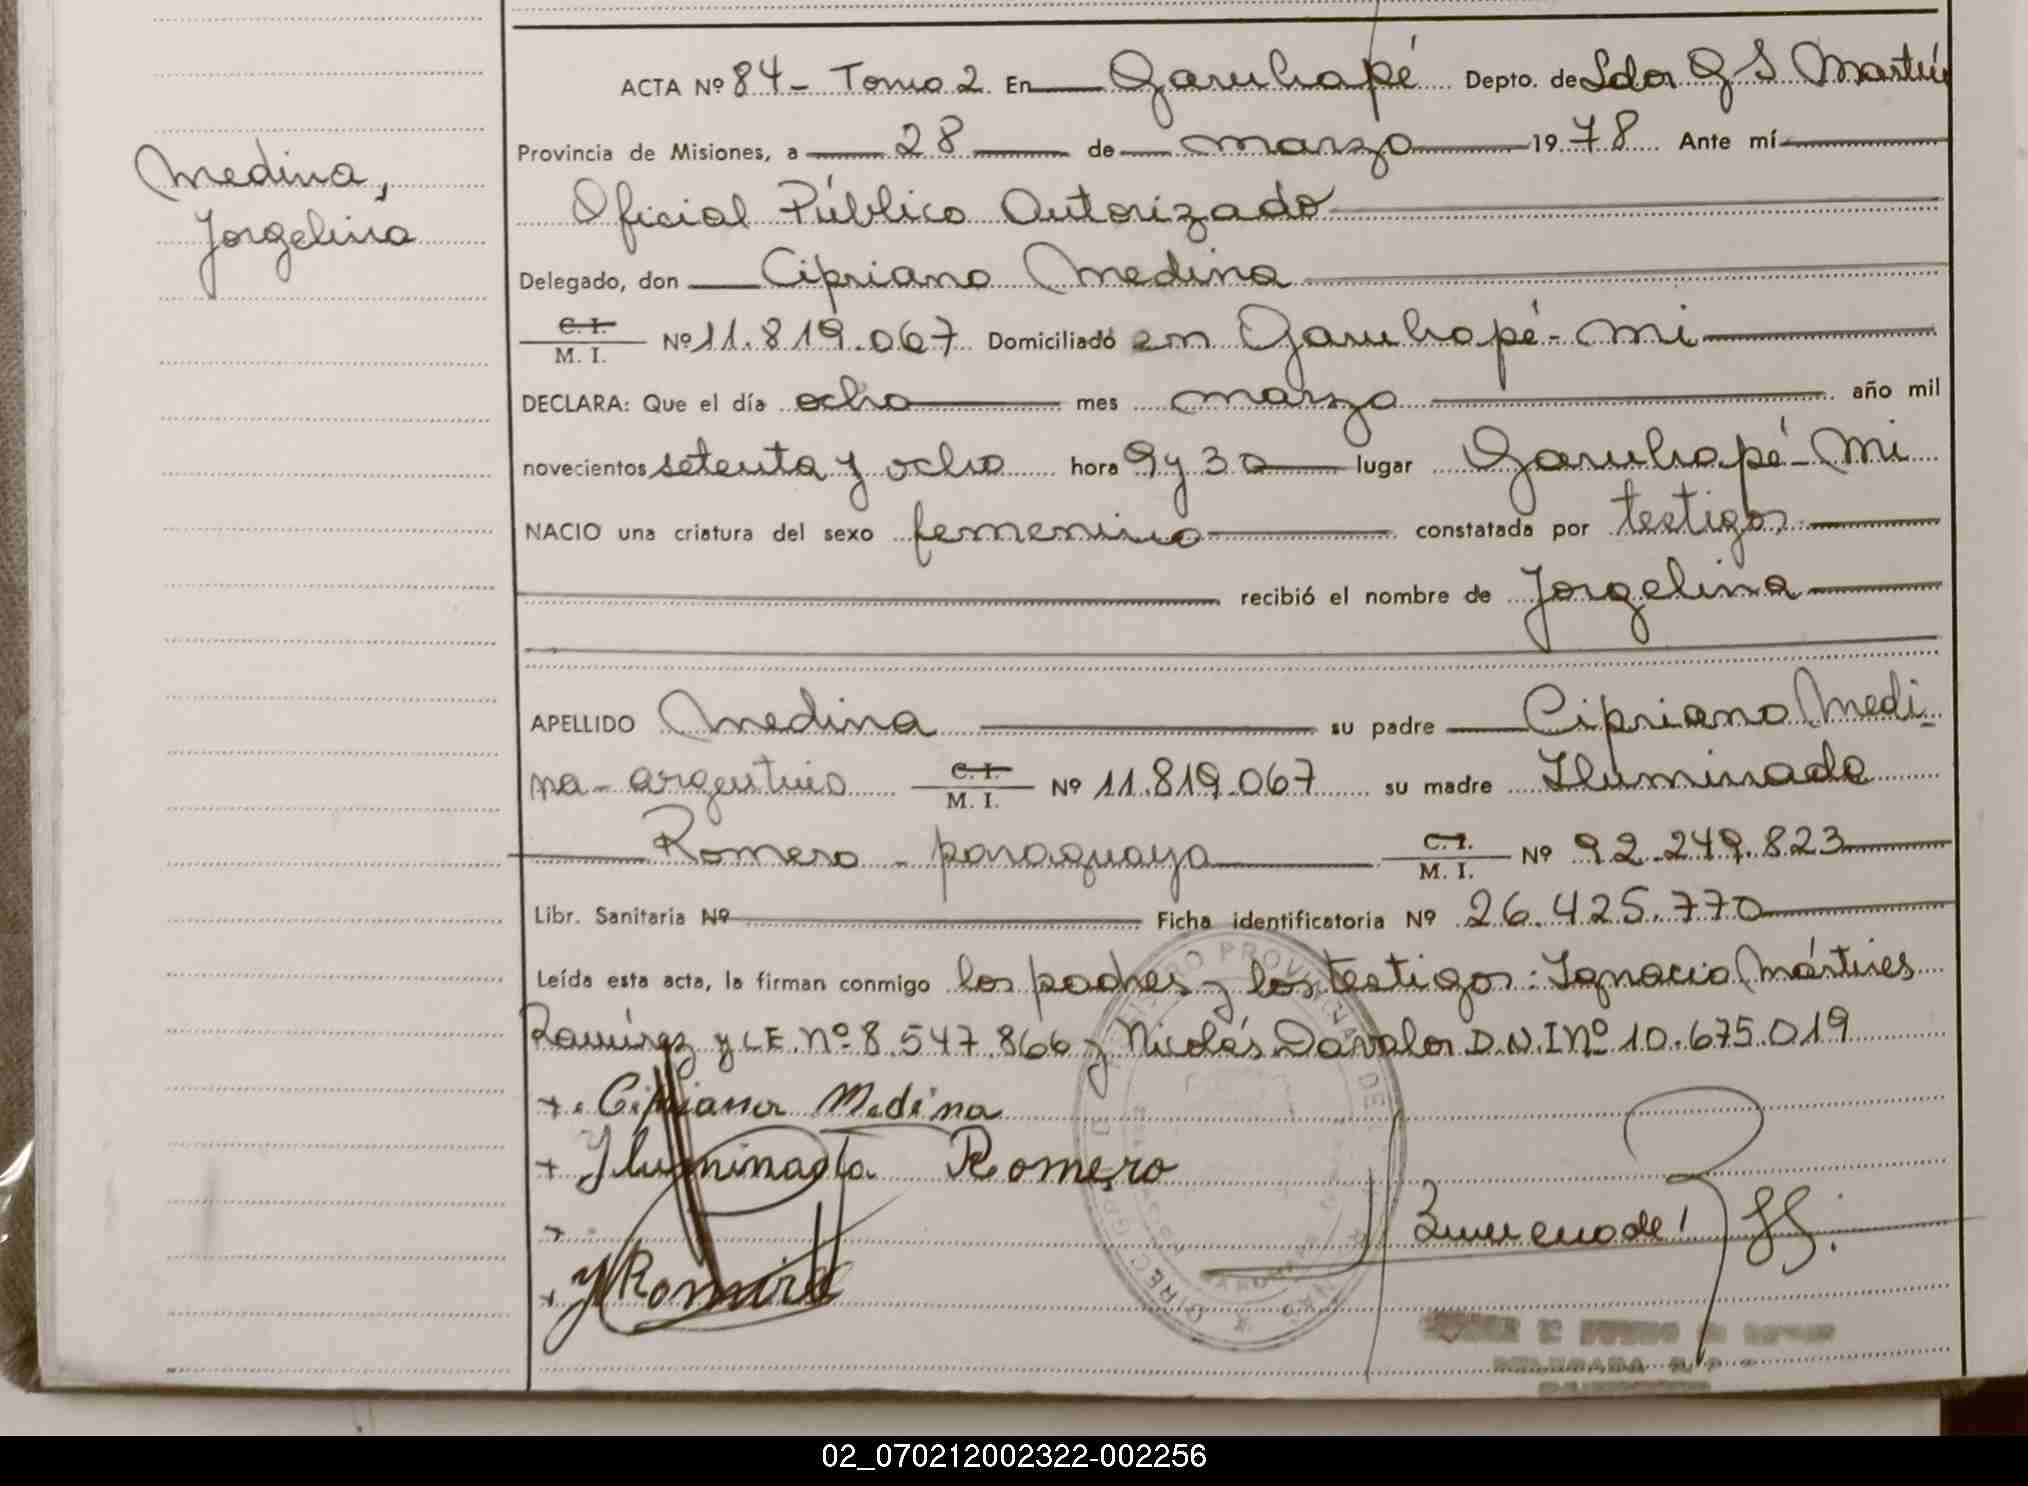 ACTA Nº 84 - Tomo 2. En Garuhapé Depto. de Ldor G S Martín
Provincia de Misiones, a 28 de marzo 1978 Ante mí
Medina,
Oficial Público Autorizado
Jorgelina
Delegado, don Cipriano Medina
C. I.
M. I. Nº 11.819.067 Domiciliado en Garuhapé - Mi
DECLARA: Que el día ocho mes marzo año mil
novecientos setenta y ocho hora 9 y 30 lugar Garuhapé - Mi
NACIO una criatura del sexo femenino constatada por testigos
recibió el nombre de Jorgelina
APELLIDO Medina su padre Cipriano Medi-
na - argentino C. I. M. I. Nº 11.819.067 su madre Iluminada
Romero - paraguaya C. I. M. I. Nº 92.249.823
Libr. Sanitaria Nº Ficha identificatoria Nº 26.425.770
Leída esta acta, la firman conmigo los padres y los testigos: Ignacio Mártires
Ramírez y L.E. Nº 8.547.866 y Nicolás Dávalos D.N.I Nº 10.675.019
+. Cipriano Medina
+ Iluminada Romero
+
+
REGISTRO PROVINCIAL DE
02_070212002322-002256